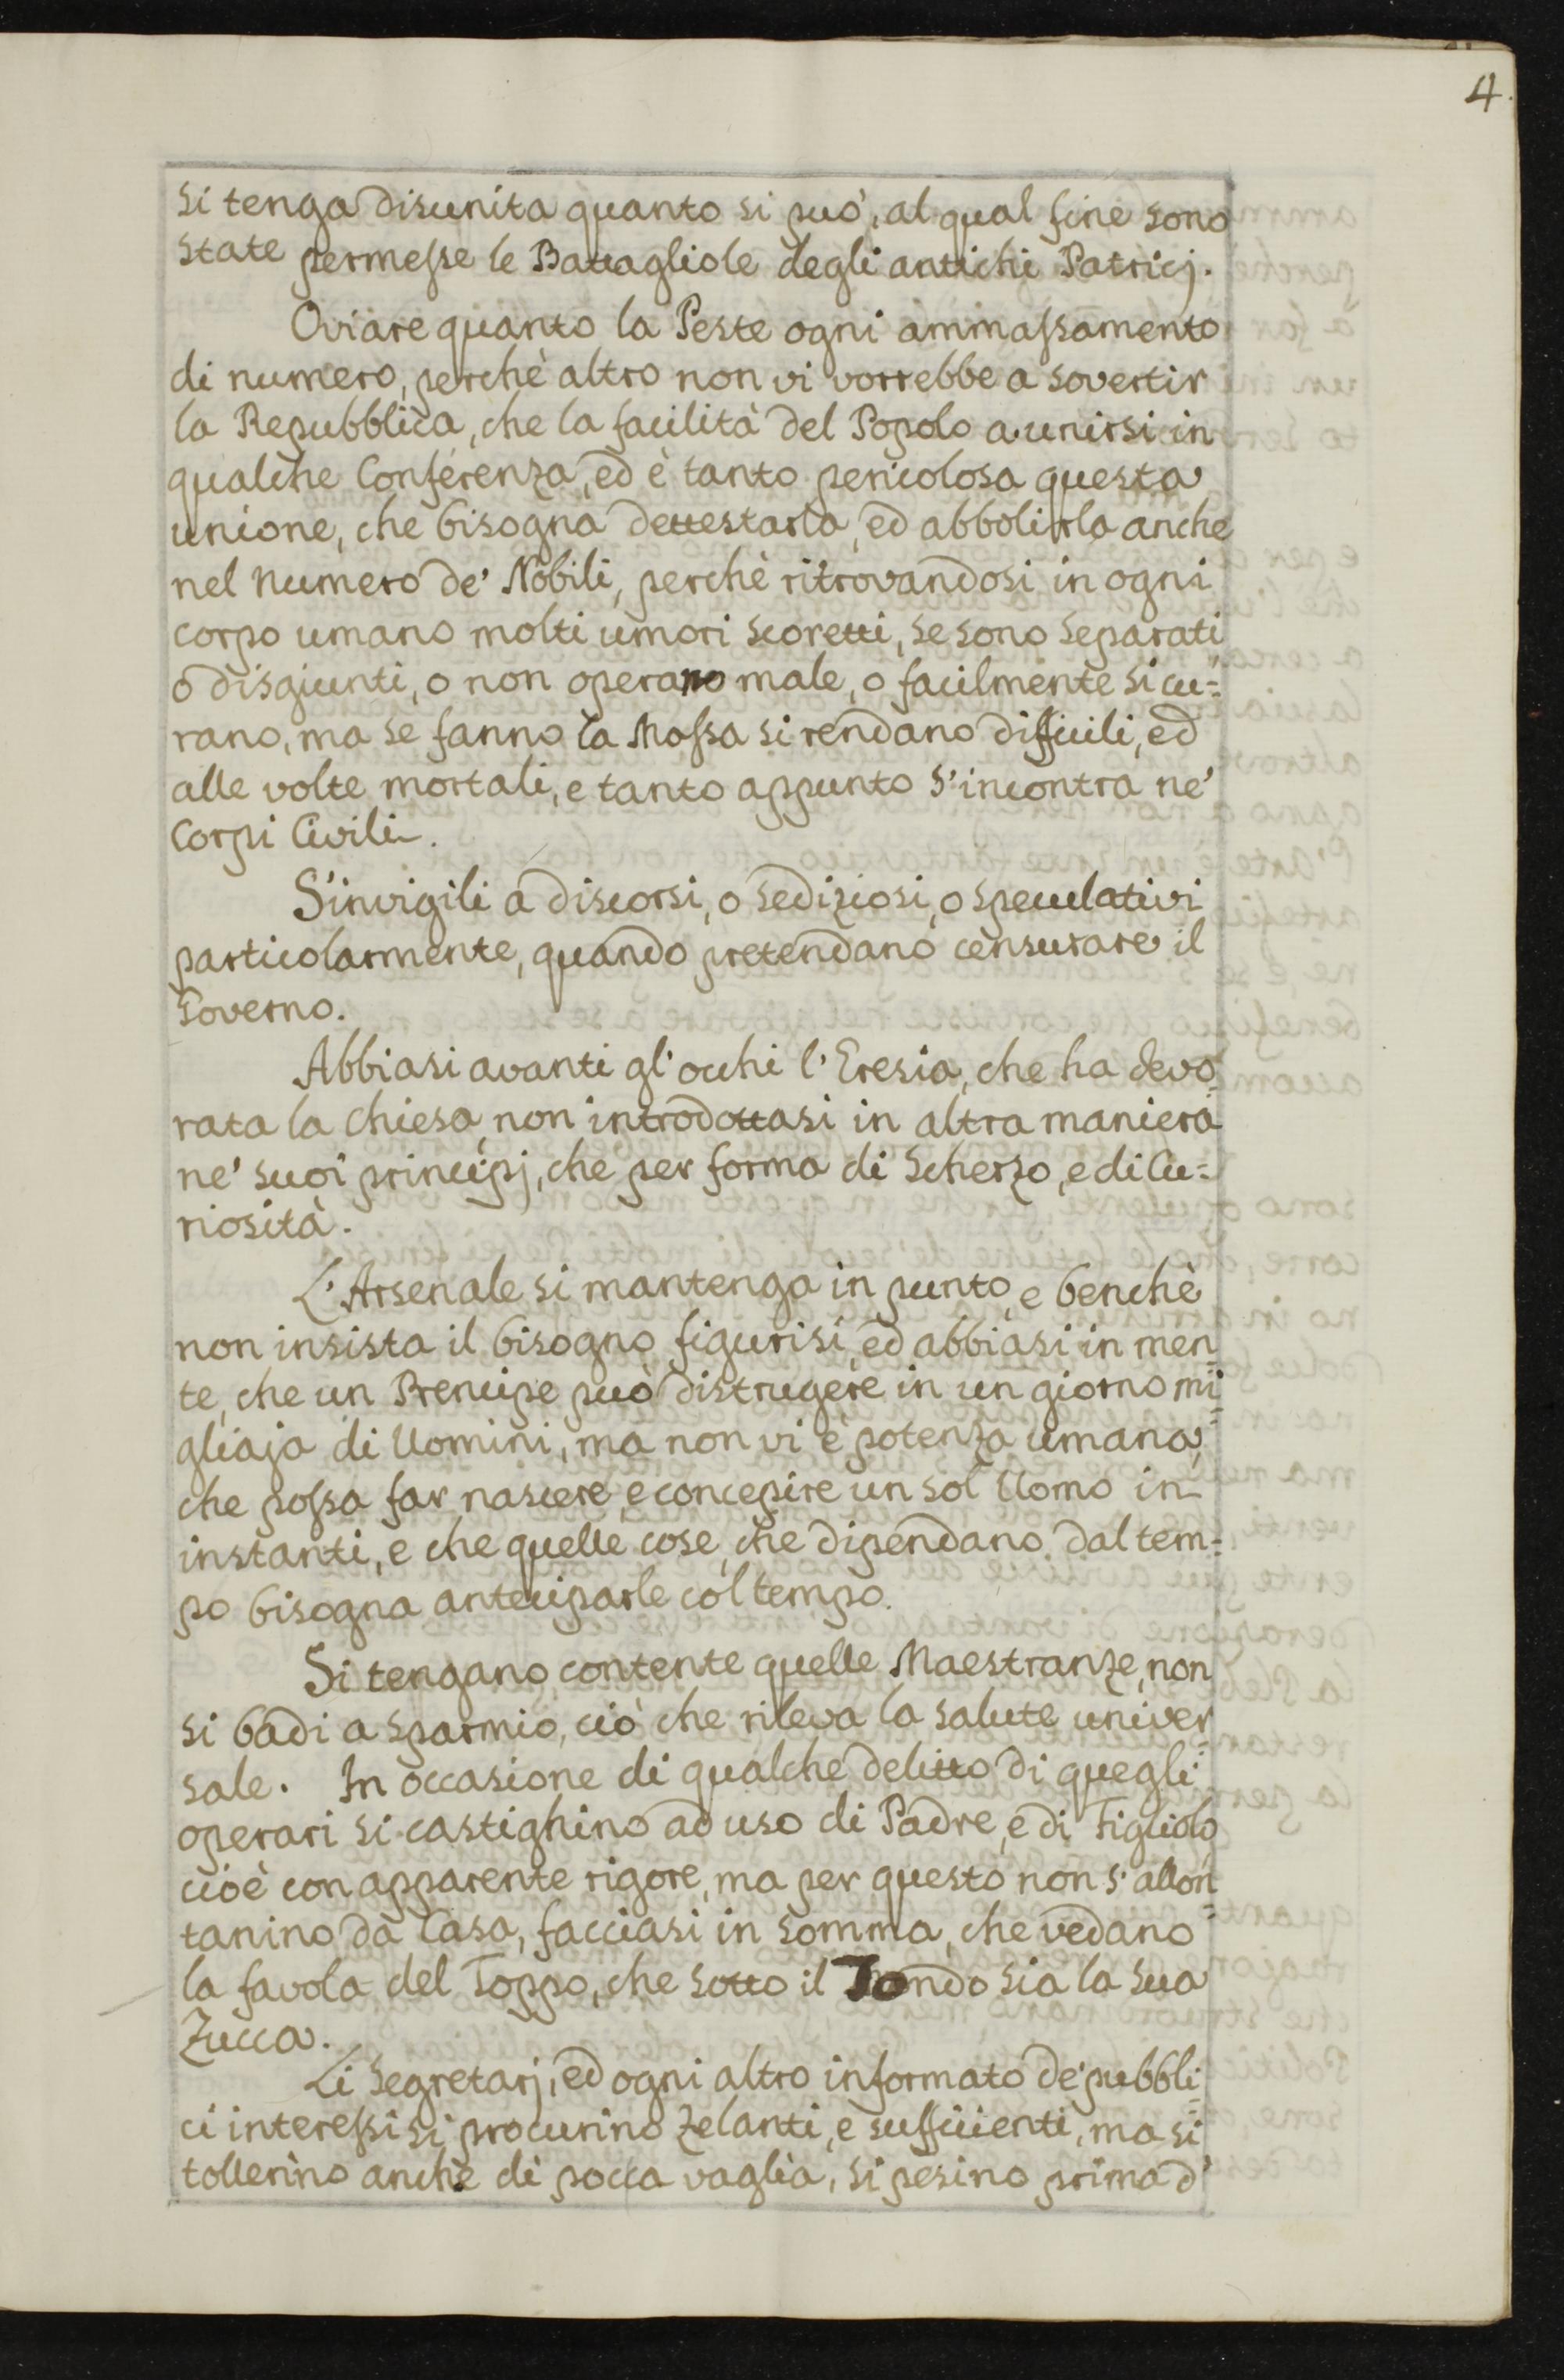 4.
si tenga disunita quanto si può, al qual fine sono
state permesse le Battagliole degli antichi Patricj.
Oviare quanto la Peste ogni ammassamento
di numero, perchè altro non vi vorrebbe a sovertir
la Repubblica, che la facilità del Popolo a unirsi in
qualche Conferenza, ed è tanto pericolosa questa
unione, che bisogna dettestarla, ed abbolirla anche
nel numero de' Nobili, perchè ritrovandosi in ogni
corpo umano molti umori scoretti, se sono separati
o disgiunti, o non operano male, o facilmente si cu=
rano, ma se fanno la Massa si rendano difficili, ed
alle volte mortali, e tanto appunto s'incontra ne'
Corpi Civili.
S'invigili a discorsi, o sediziosi, o speculativi
particolarmente, quando pretendano censurare il
Governo.
Abbiasi avanti gl'occhi l'Eresia, che ha devo=
rata la Chiesa, non introdottasi in altra maniera
ne' suoi principj, che per forma di Scherzo, e di Cu=
riosità.
L'Arsenale si mantenga in punto, e benchè
non insista il bisogno figurisi, ed abbiasi in men=
te, che un Prencipe può distrugere in un giorno mi=
gliaja di Uomini, ma non vi è potenza umana,
che possa far nascere, e concepire un sol Uomo in
instanti, e che quelle cose, che dipendano dal tem=
po bisogna anteciparle col tempo.
Si tengano contente quelle Maestranze, non
si badi a sparmio, ciò che rileva la salute univer=
sale. In occasione di qualche delitto di quegli
operari si castighino ad uso di Padre, e di Figliolo
cioè con apparente rigore, ma per questo non s'allon=
tanino da Casa, facciasi in somma, che vedano
la favola del Toppo, che sotto il Tondo sia la sua
Zucca.
Li Segretarj, ed ogni altro informato de' pubbli=
ci interessi si procurino zelanti, e sufficienti, ma si
tollerino anche di pocca vaglia, si pesino prima d'